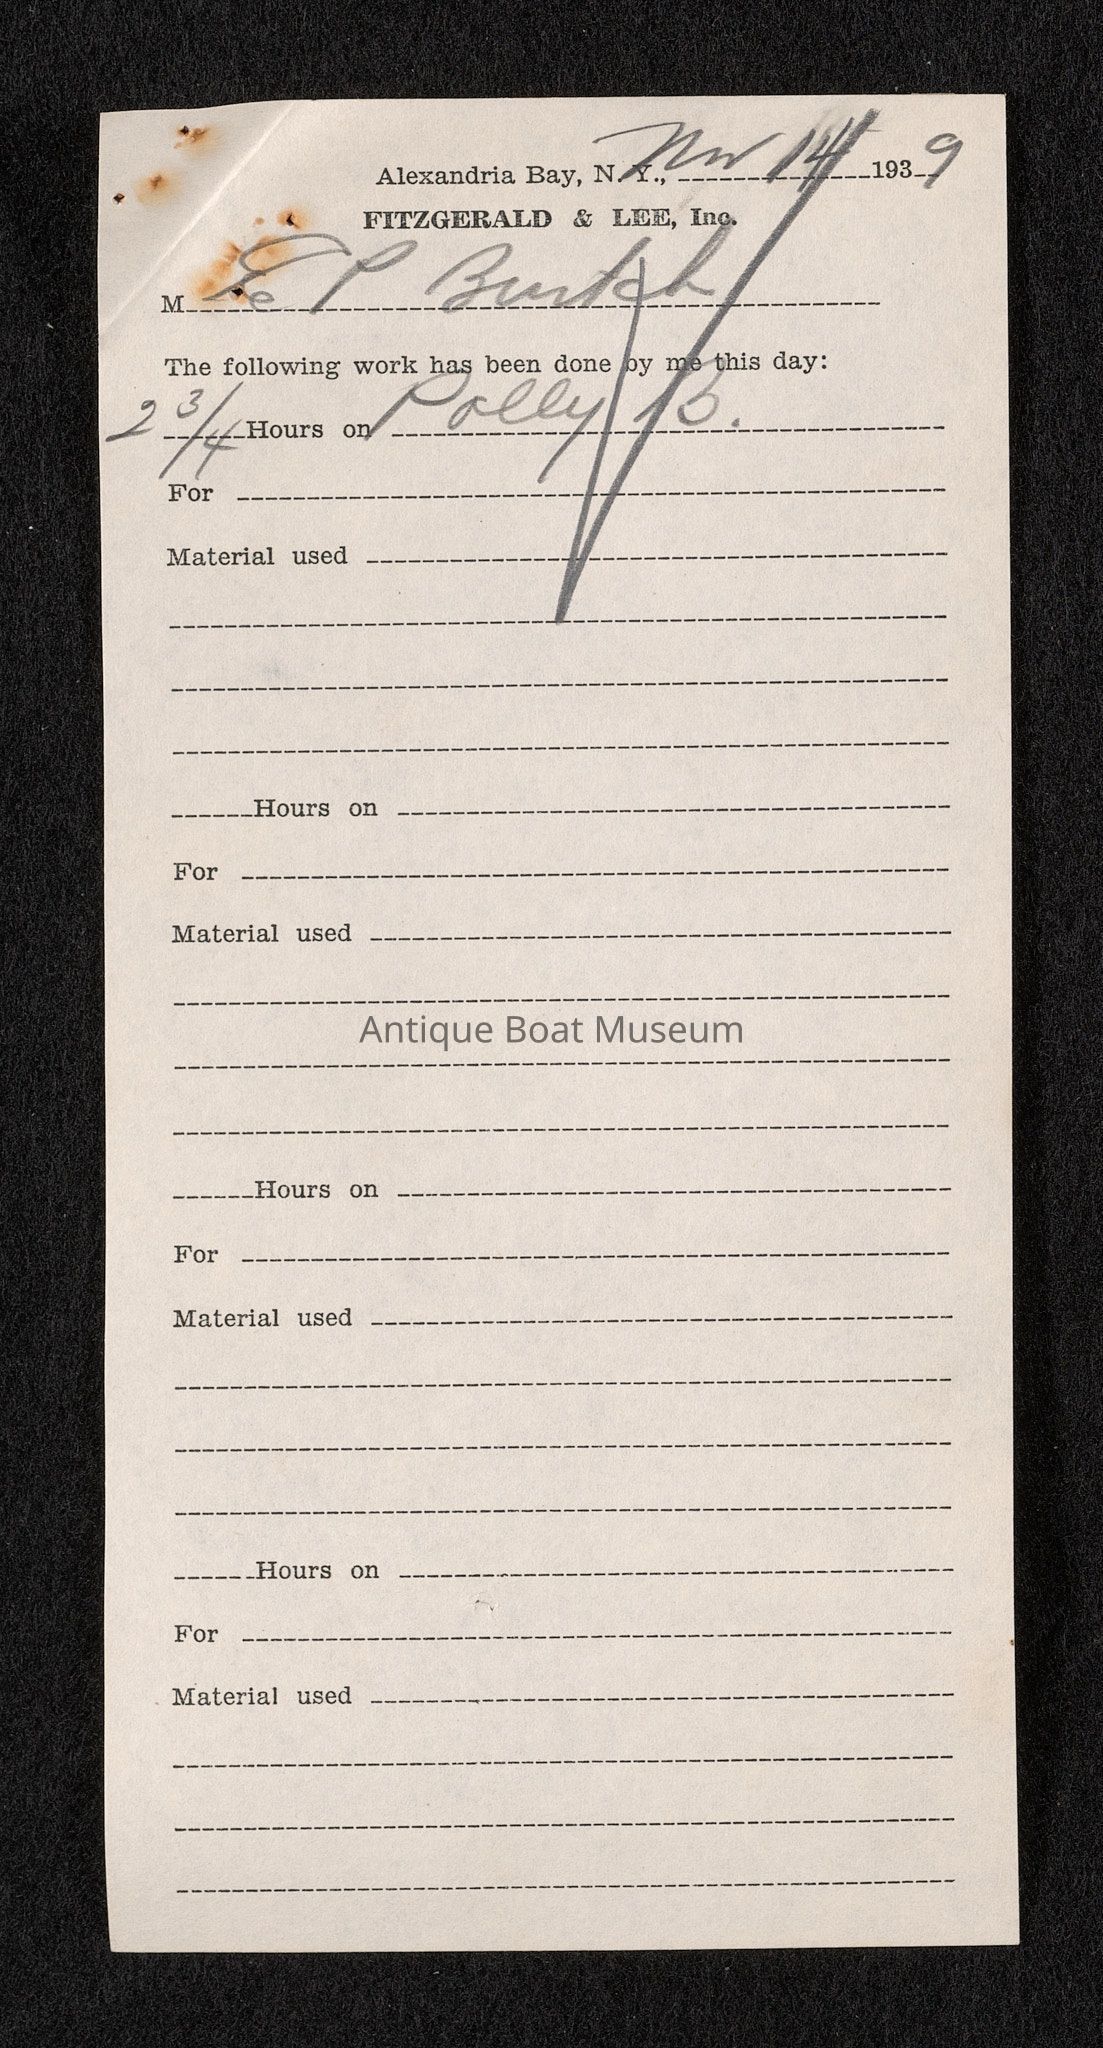 Alexandria Bay, N. Y., Nov 14 1939
FITZGERALD & LEE, Inc.
M P
The following work has been done by me this day:
2 3/4 Hours on Polly B.
For
Material used
Hours on
For
Material used
Antique Boat Museum
Hours on
For
Material used
Hours on
For
Material used